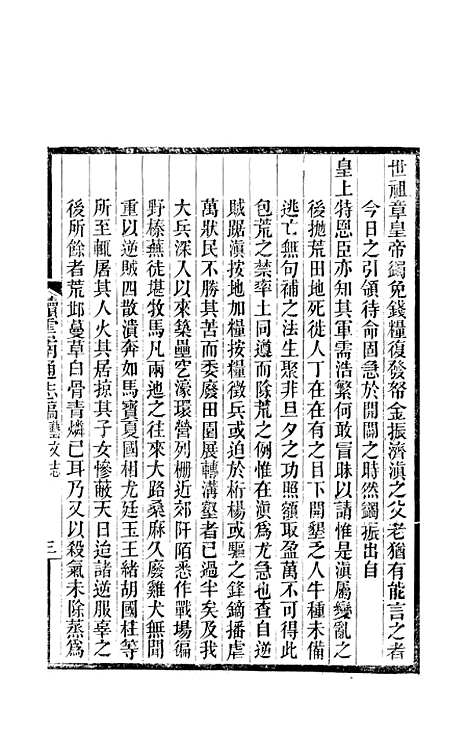 世祖章皇帝蠲免錢糧復發帑金振濟滇之父老猶有能言之者
今日之引領待命固急於開闢之時然蠲振出自
皇上特恩臣亦知其軍需浩繁何敢冒昧以請惟是滇屬變亂之
後拋荒田地死徙人丁在在有之目下開墾乏人牛種未備
逃亡無句補之法荒非旦夕之功照額取盈萬不可得此
包荒之禁率土同遵而除荒之例惟在滇爲尤急也查自逆
賊踞滇按地加糧按糧徵兵或迫於桁楊或驅之鋒鏑播虐
萬狀民不堪其苦而委廢田園展轉溝壑者已過半矣及我
大兵深入以來築壘空濠環營列柵近郊阡陌悉作戰場徧
野榛蕪徒堪牧馬凡兩迤之往來大路桑麻久廢雞犬無聞
重以逆賊四散潰奔如馬寶夏國相尤廷玉王緒胡國柱等
所至輒屠其人火其居掠其子女慘蔽天日迨諸逆服辜之
後所餘者荒邨蔓草白骨青燐已耳乃又以殺氣未除蒸爲
續雲南通志稿 藝文志
三